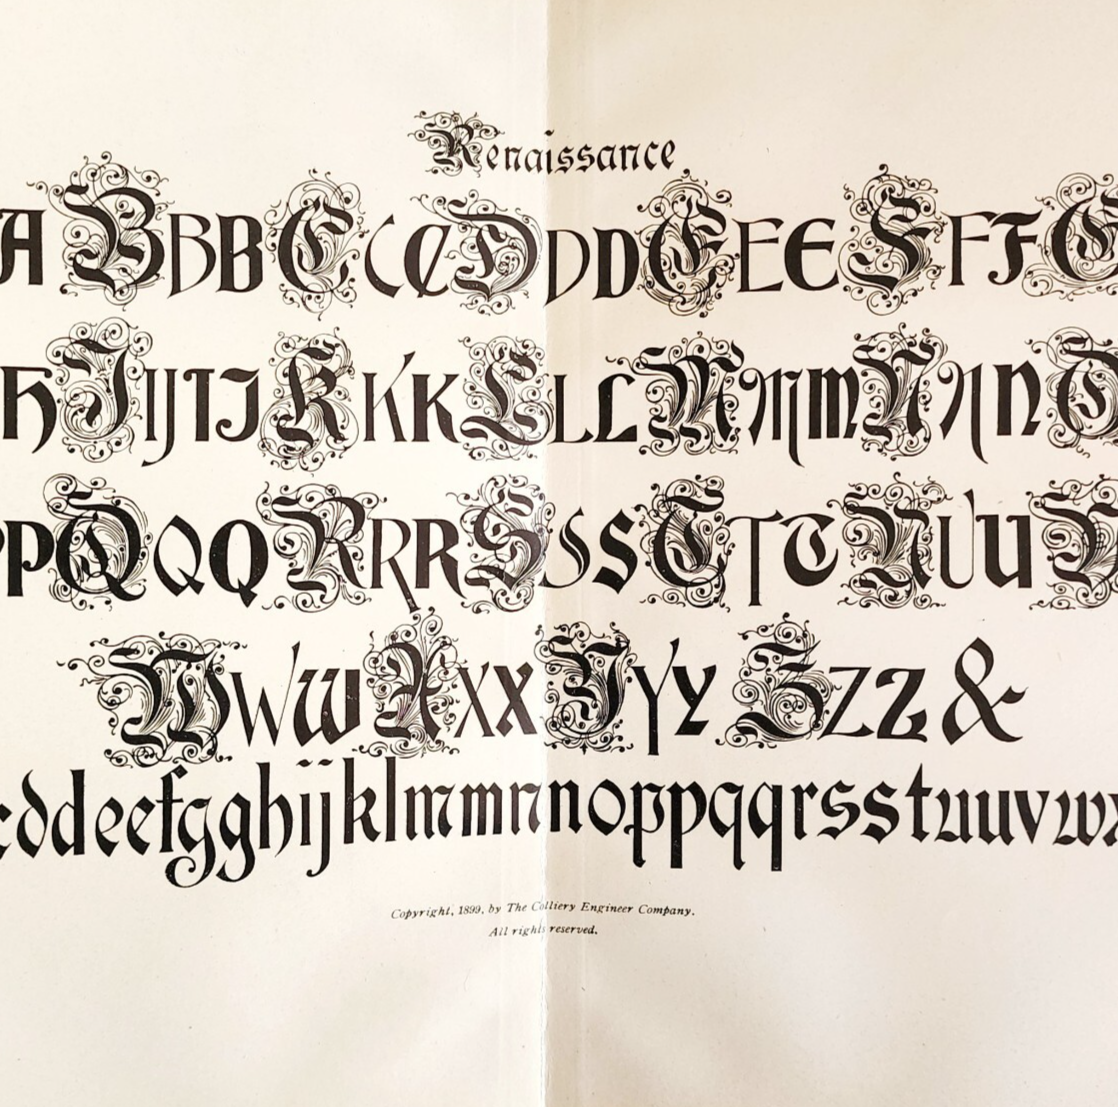 Renaissance
A B B B C C C D D D E E E F F F G
H I I J I J K K K L L L M M m N N n O
P P Q Q Q R R R S S S T T T U U U V
W W W X X X Y Y Y Z Z Z &
c d d e e f g g h i j k l m m n n o p p q q r s s t u u v w x
Copyright, 1899, by The Colliery Engineer Company.
All rights reserved.